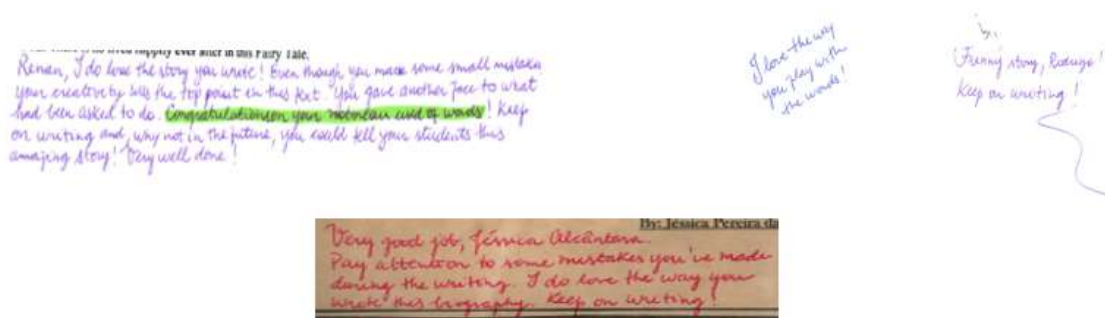 lived happily ever after in this Fairy Tale.
Renan, I do love the story you wrote! Even though you made some small mistakes
your creativity was the top point in this text. You gave another face to what
had been asked to do. Congratulations on your use of words! Keep
on writing and, why not in the future, you could tell your students this
amazing story! Very well done!
I love the way
you play with
the words!
Funny story, Rodrigo!
Keep on writing!
By: Jéssica Pereira da
Very good job, Jéssica Alcântara.
Pay attention to some mistakes you've made
during the writing. I do love the way you
wrote this biography. Keep on writing!